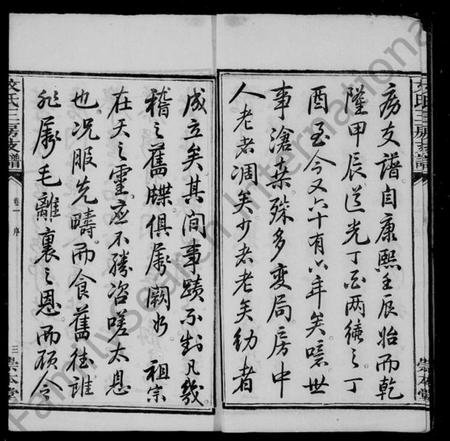 文氏三房支譜
房支譜自康熙壬辰始而乾
隆甲辰道光丁酉兩續之丁
酉至今又六十有六年矣噫世
事滄桑殊多變局房中
人老者凋矣少者老矣幼者
成立矣其間事蹟不對凡幾
稽之舊牒俱屬闕如 祖宗
在天之靈應不勝咨嗟太息
也况服先疇而食舊德誰
非屬毛離裏之恩而願令
文氏三房支譜
卷一 序
三
崇本堂
崇本堂
FamilySearch International